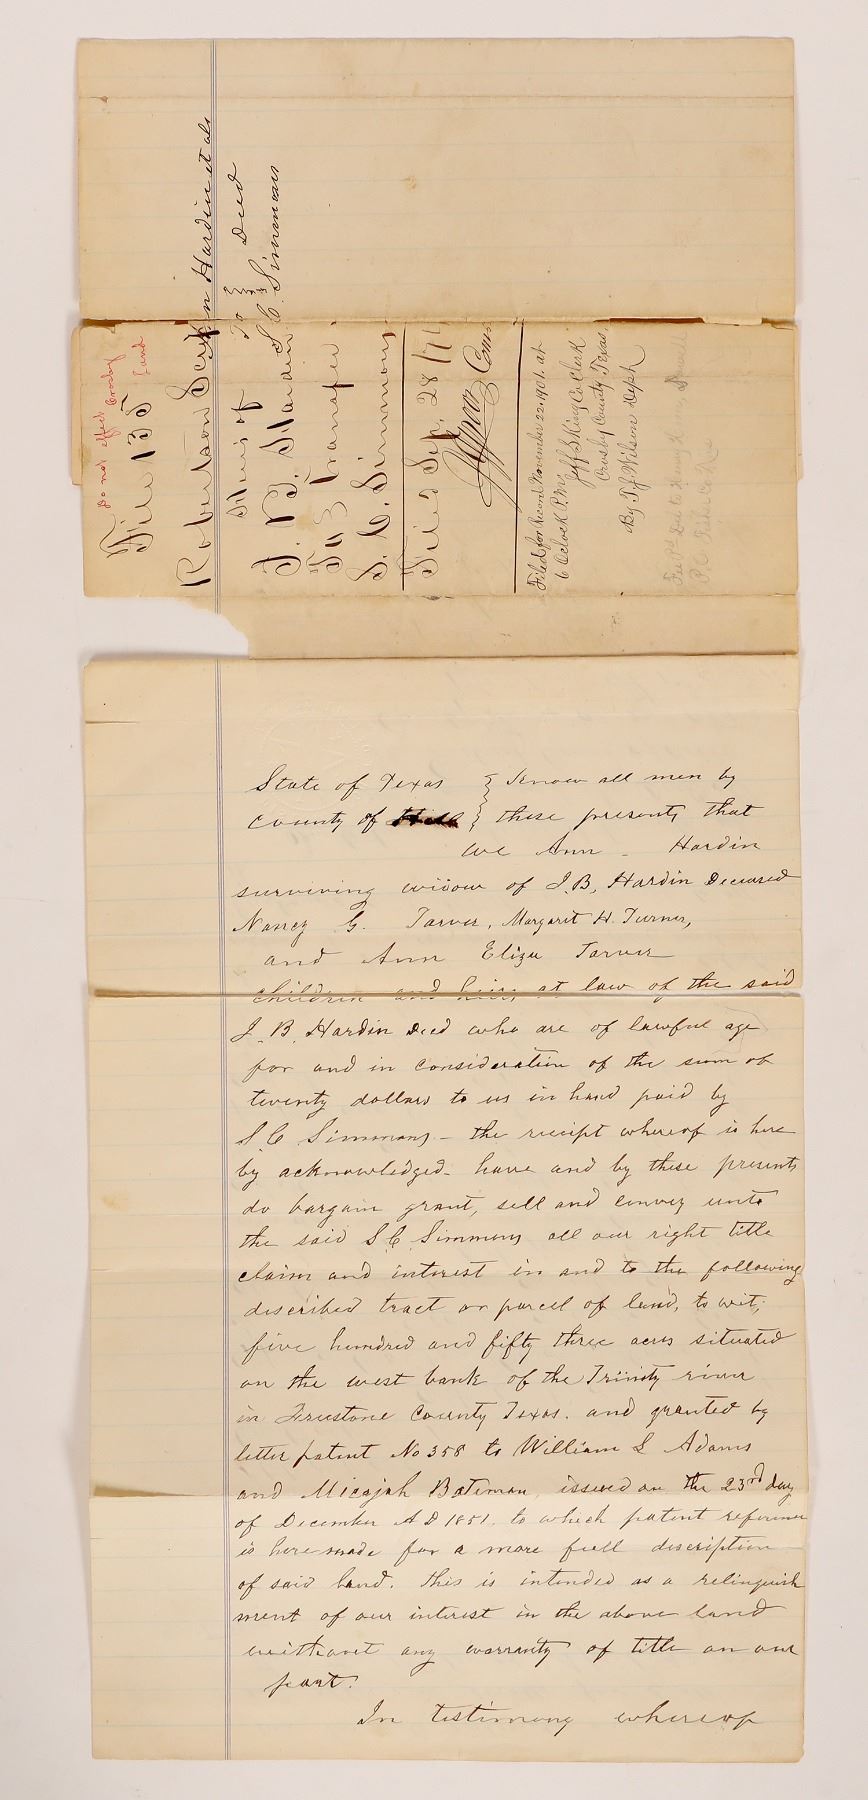 Do not effect Crosby
land
File 135
Robertson Scrip
n Hardin et als
To Deed
S. C. Simmons
Heirs of
J. B. Hardin
To Transfer
S. C. Simmons
Filed Sep. 28/71
Com
Filed for Record November 22, 1901, at
6 Oclock P.M.
Jeff S King Co Clerk
Crosby County Texas.
By T J Wilson Deph
State of Texas } Know all men by
County of Hill } these presents that
We Ann - Hardin
surviving widow of J. B. Hardin Deceased
Nancy G. Tarver, Margaret H. Turner,
and Ann Eliza Tarver
children and heirs at law of the said
J. B. Hardin Decd who are of lawful age
for and in consideration of the sum of
twenty dollars to us in hand paid by
S. C Simmons - the receipt whereof is here
by acknowledged - have and by these presents
do bargain grant, sell and convey unto
the said S C Simmons all our right title
claim and interest in and to the following
described tract or parcel of land, to wit;
five hundred and fifty three acres situated
on the west bank of the Trinity river
in Freestone County Texas. and granted by
letter patent No 358 to William S Adams
and Micajah Bateman, issued on the 23rd day
of December A D 1851. to which patent reference
is here made for a more full description
of said land. this is intended as a relinquish
ment of our interest in the above land
without any warranty of title on our
part.
In testimony whereof